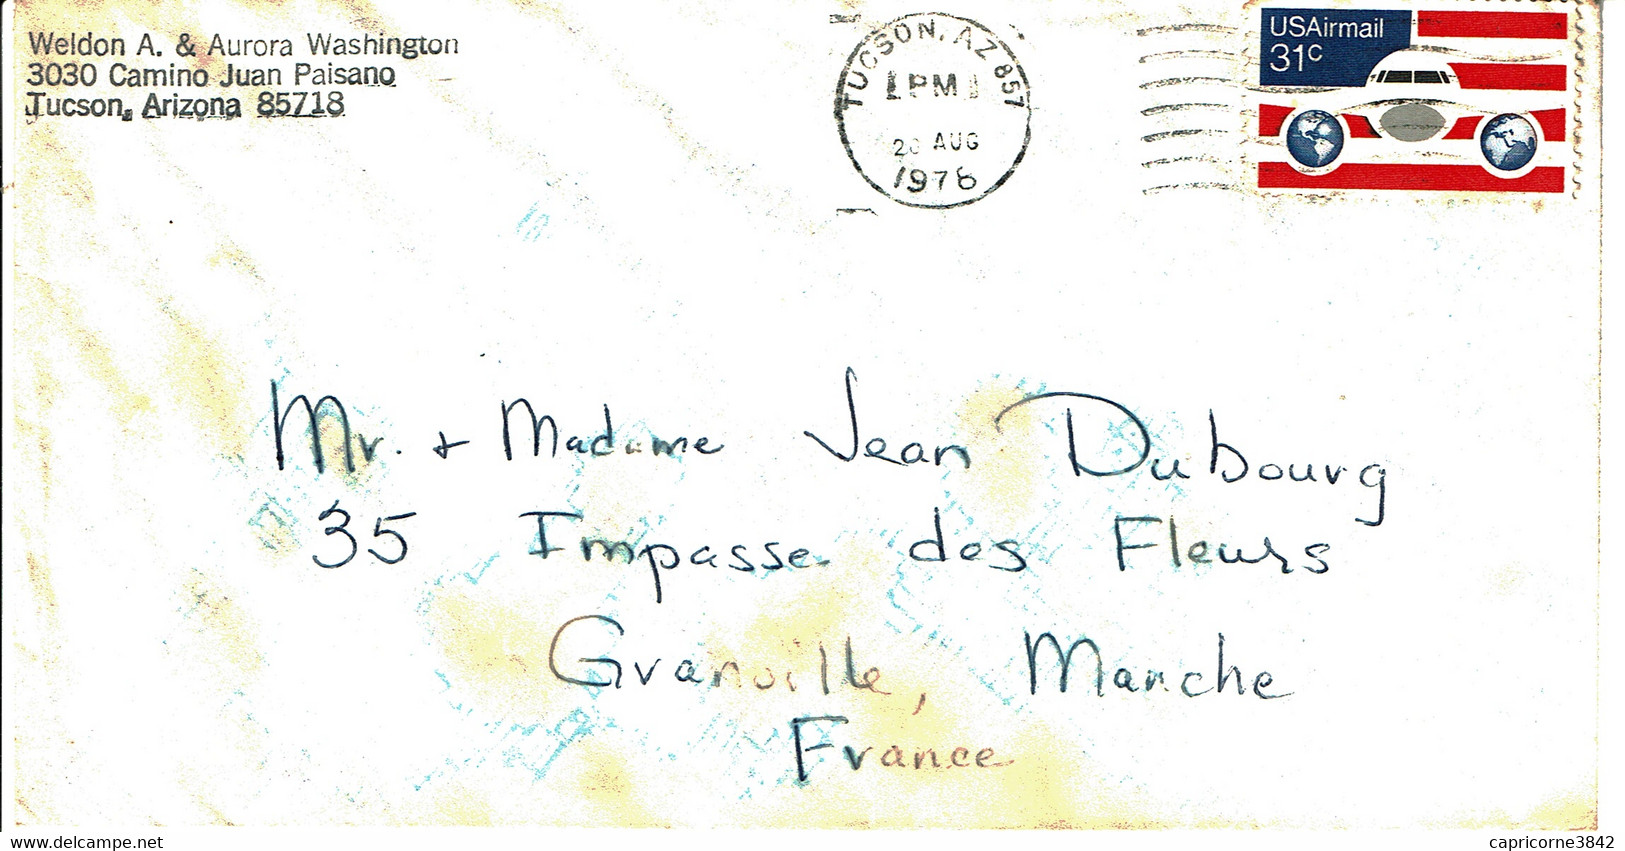 Weldon A. & Aurora Washington
3030 Camino Juan Paisano
Tucson, Arizona 85718
TUCSON, AZ 857
PM
AUG
1976
USAirmail
31c
Mr. + Madame Jean Dubourg
35 Impasse des Fleurs
Granville, Manche
France
www.delcampe.net
capricorne3842